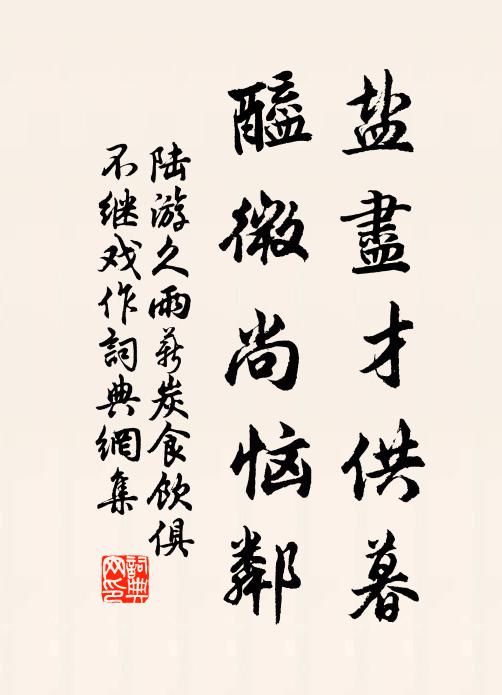 盐盡才供暮
醯微尚恼鄰
陆游久雨薪炭食飲俱
不继戏作詞典網集
詞典
网印